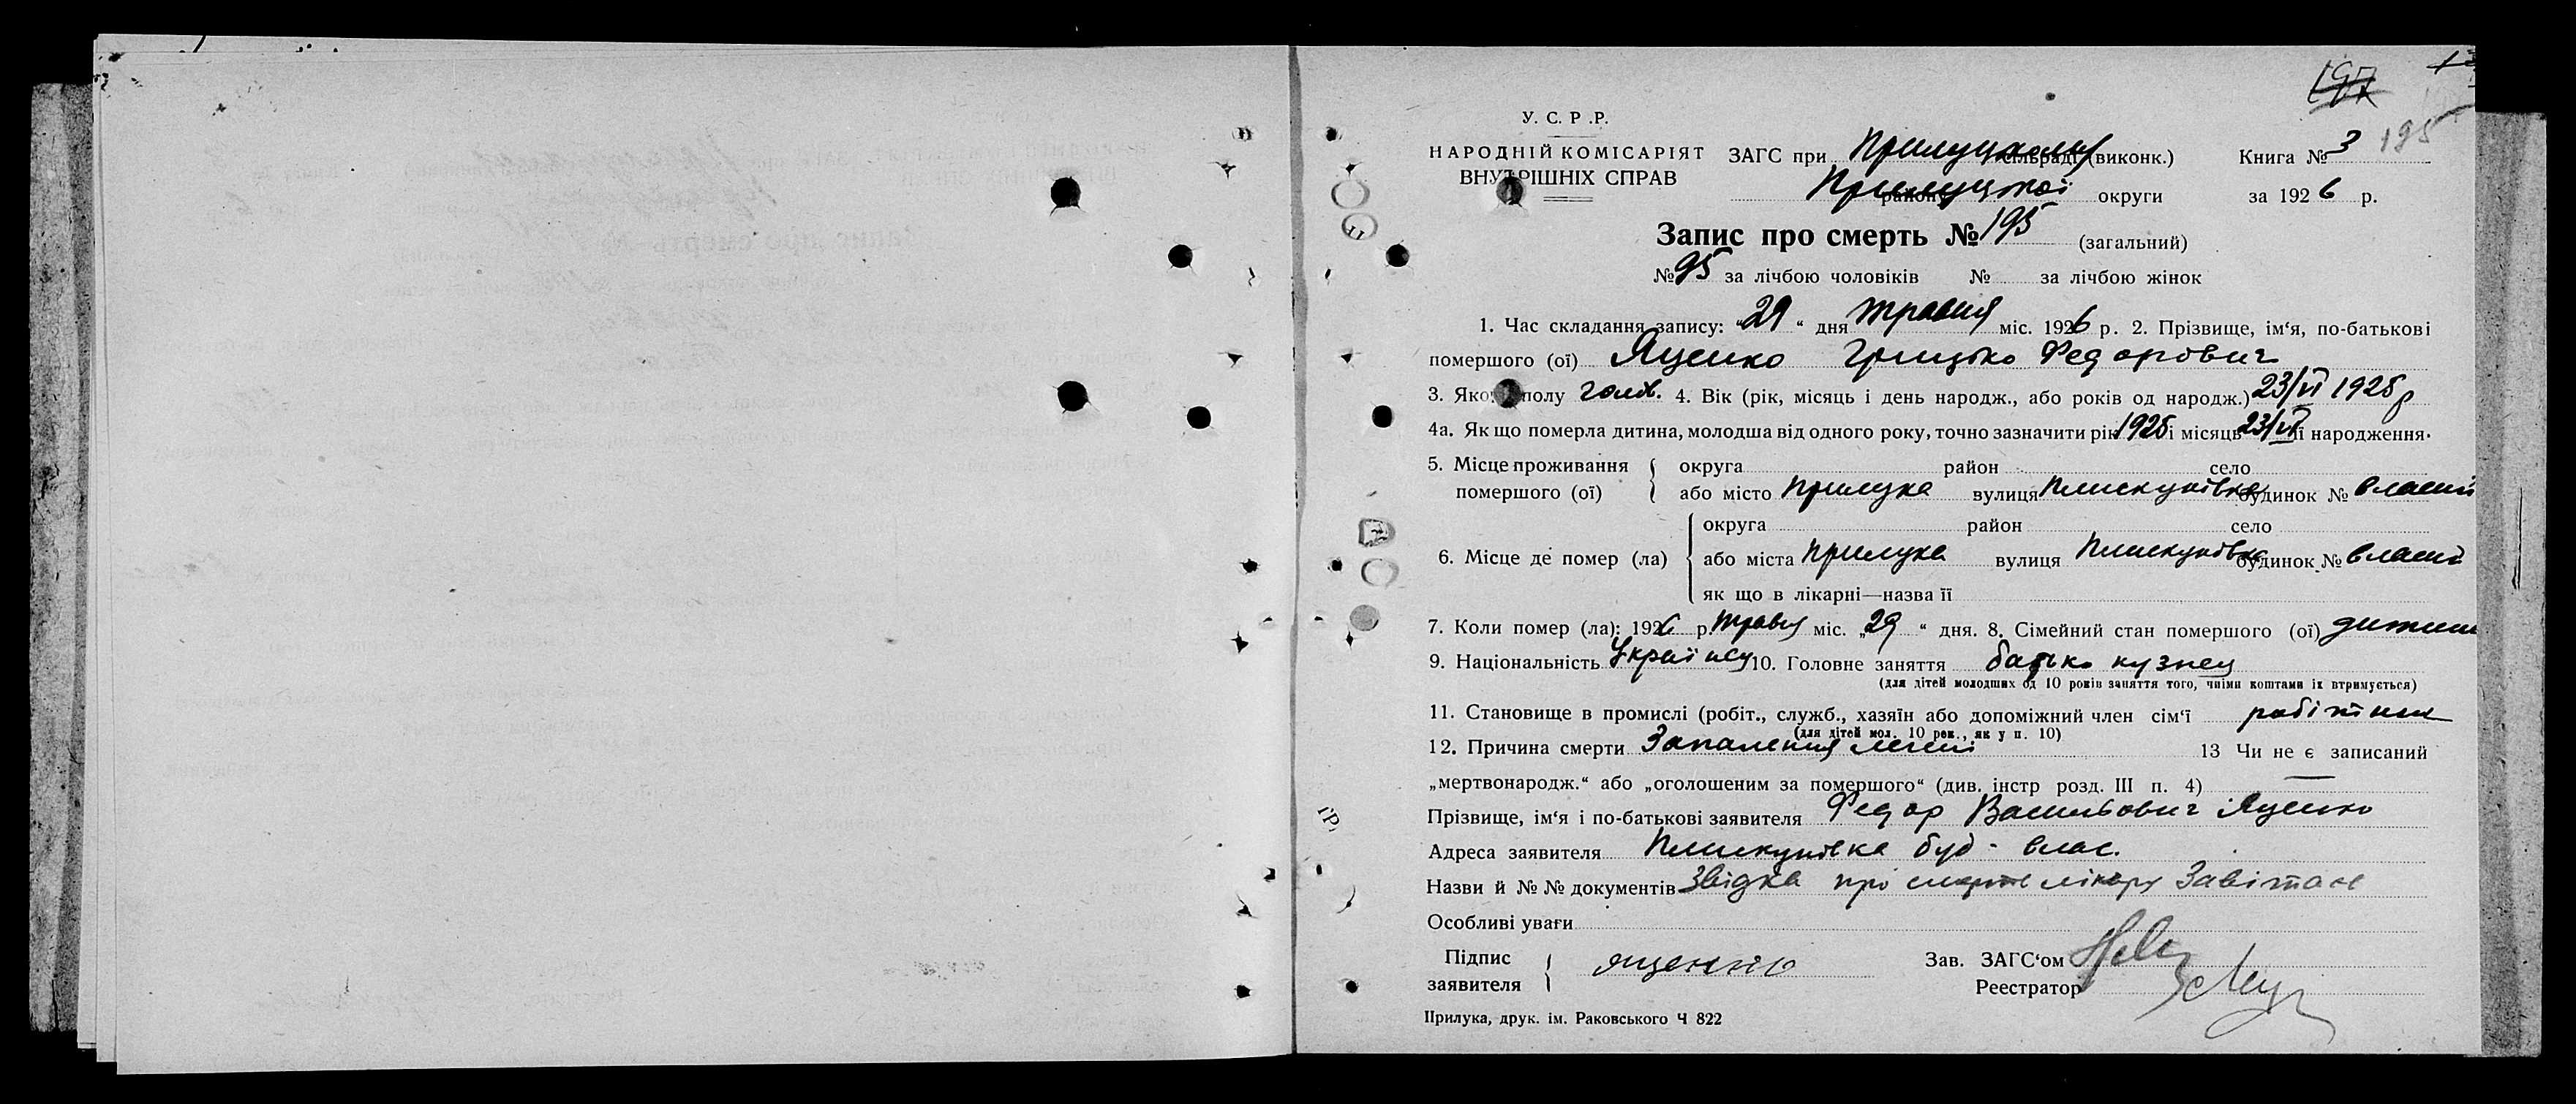 197
195
У. С. Р .Р.
НАРОДНІЙ КОМІСАРІЯТ
ВНУТРІШНІХ СПРАВ
ЗАГС при Прилуцькому сільраді (виконк.)
Книга № 3
Прилуцької району округи
за 1926 р.
Запис про смерть № 195 (загальний)
№ 95 за лічбою чоловіків № за лічбою жінок
1. Час складання запису: "29" дня травня міс. 1926 р. 2. Прізвище, ім‘я, по-батькові
помершого (ої) Яценко Грицько Федорович
3. Якого полу чолов. 4. Вік (рік, місяць і день народж., або років од народж.) 23/VI 1925 р
4а. Як що померла дитина, молодша від одного року, точно зазначити рік 1925 і місяць 23/VI її народження.
5. Місце проживання помершого (ої)
округа район село
або місто Прилука вулиця Плискунівка будинок № власний
6. Місце де помер (ла)
округа район село
або міста Прилука вулиця Плискунівка будинок № власний
як що в лікарні—назва її
7. Коли помер (ла): 1926 р. травня міс. „29“ дня. 8. Сімейний стан помершого (ої) дитина
9. Національність Українець 10. Головне заняття батько кузнец
(для дітей молодших од 10 років заняття того, чиїми коштами їх втримується)
11. Становище в промислі (робіт., служб., хазяїн або допоміжний член сім‘ї робітник
(для дітей мол. 10 рок., як у п. 10)
12. Причина смерти Запалення легені 13 Чи не є записаний
„мертвонародж.“ або „оголошеним за помершого“ (див. інстр розд. III п. 4) —
Прізвище, ім‘я і по-батькові заявителя Федор Васильович Яценко
Адреса заявителя Плискунівка буд - влас.
Назви й № № документів Звідка про смерть лікаря
Особливі уваги
Підпис заявителя Яценко
Зав. ЗАГС‘ом
Реестратор
Прилука, друк. ім. Раковського Ч 822